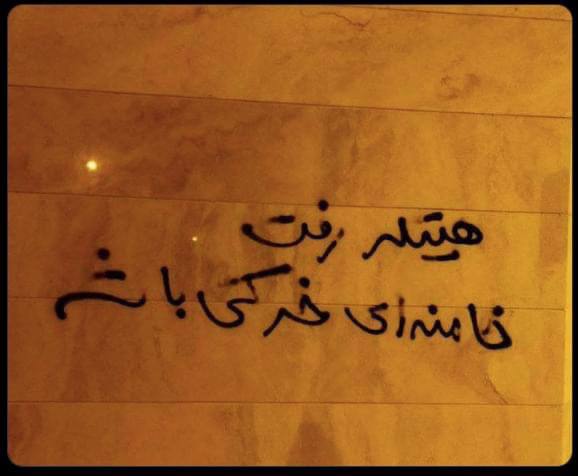 هیتلر رفت
خامنه‌ای خر کی باشه